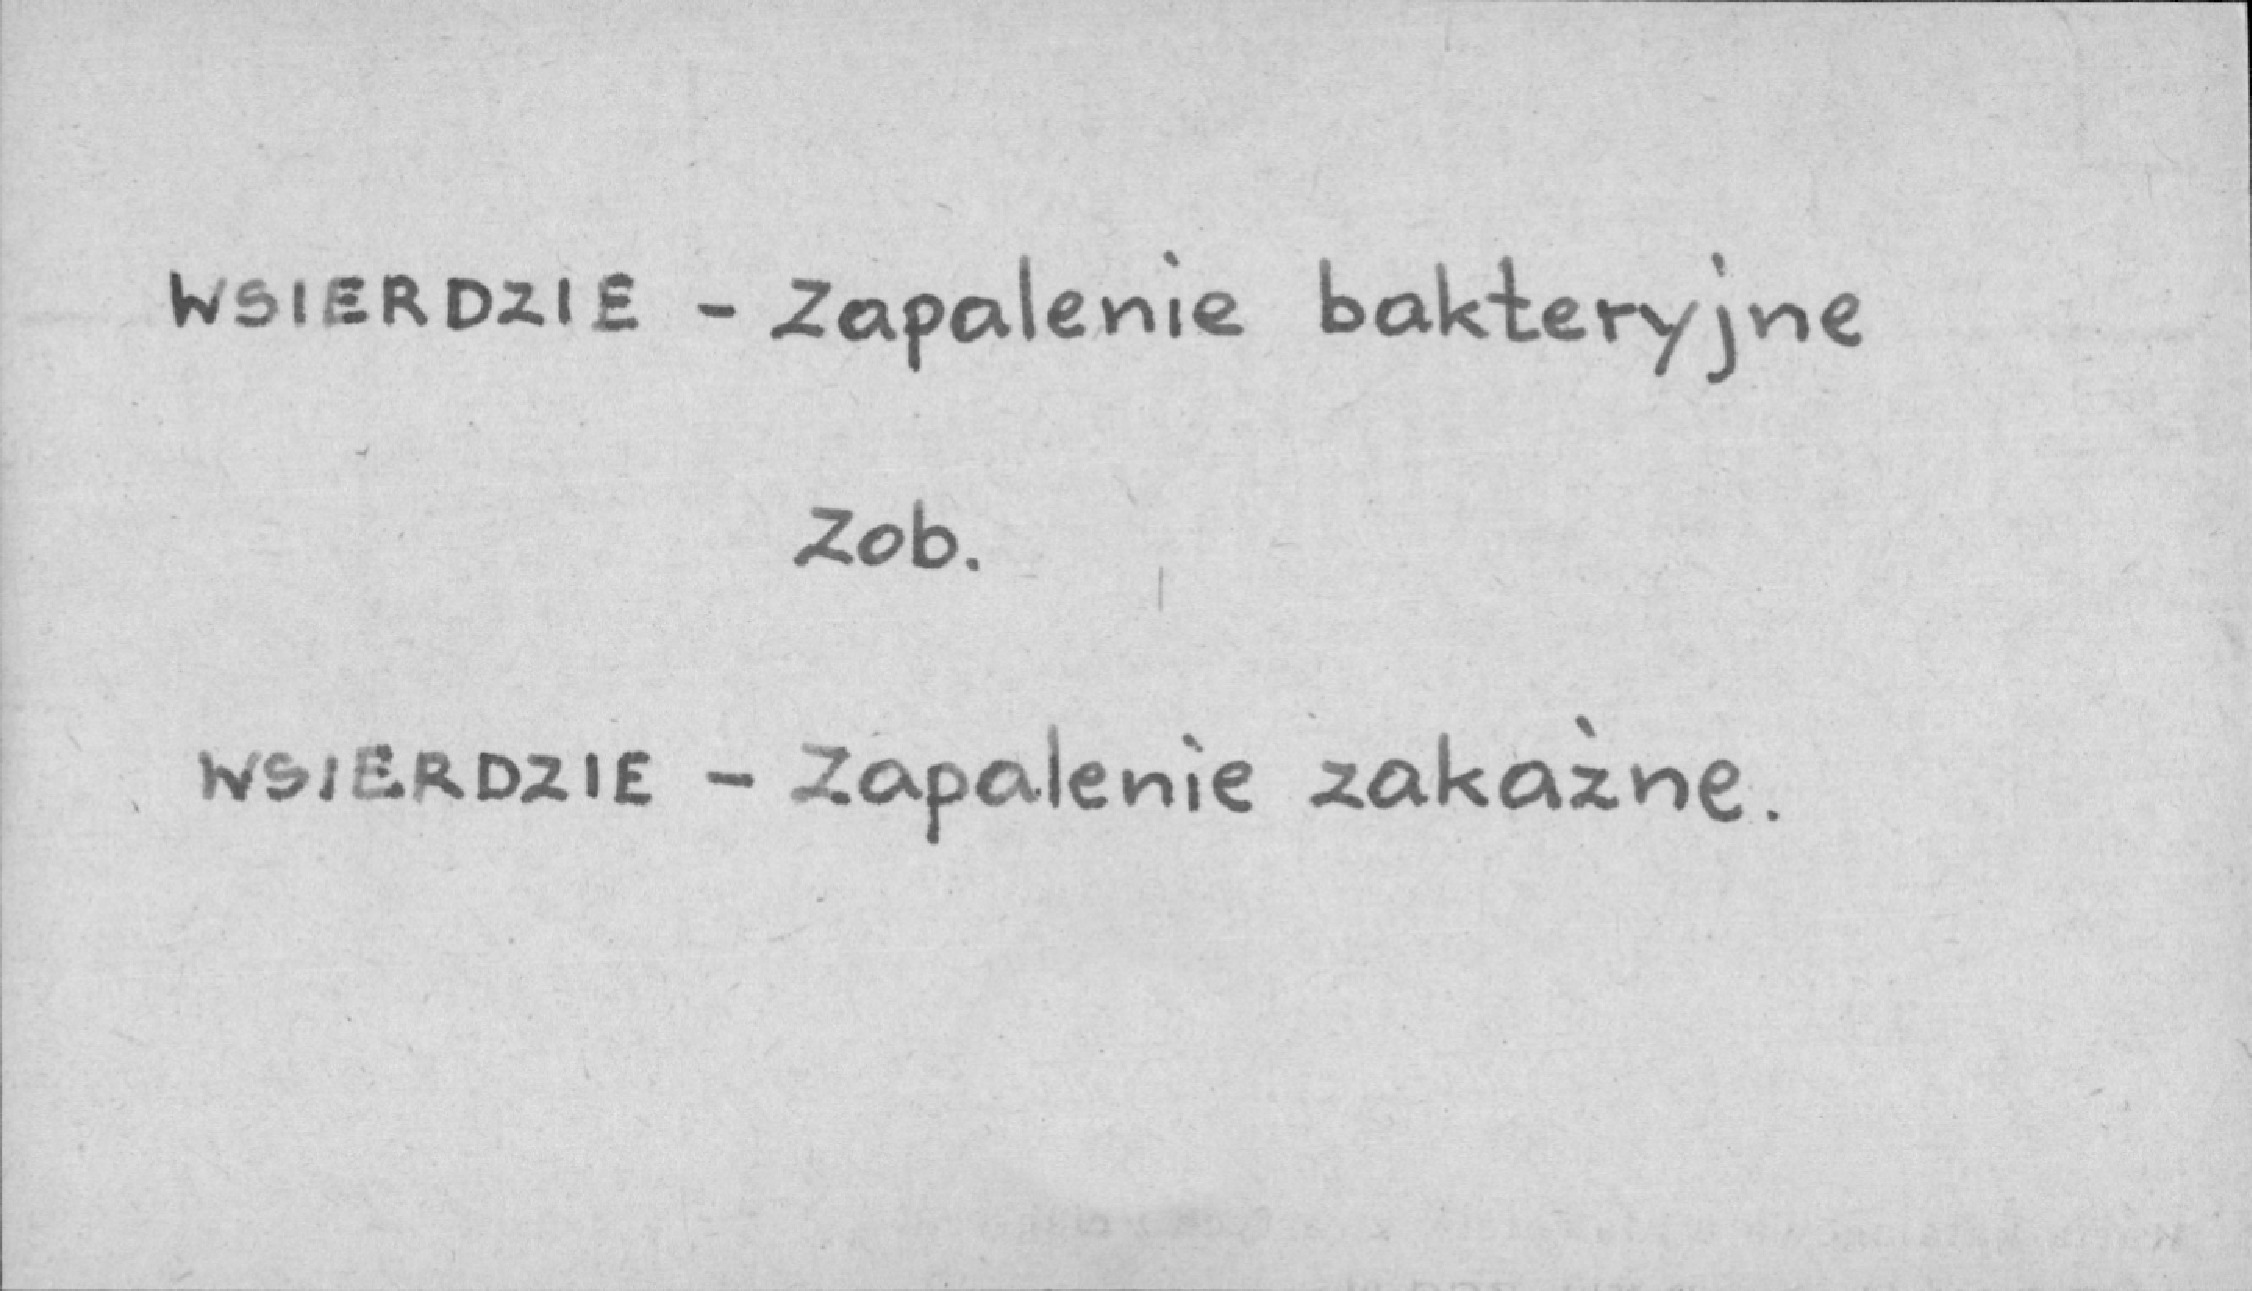 WSIERDZIE - Zapalenie bakteryjne
Zob.
WSIERDZIE - Zapalenie zakaźne.